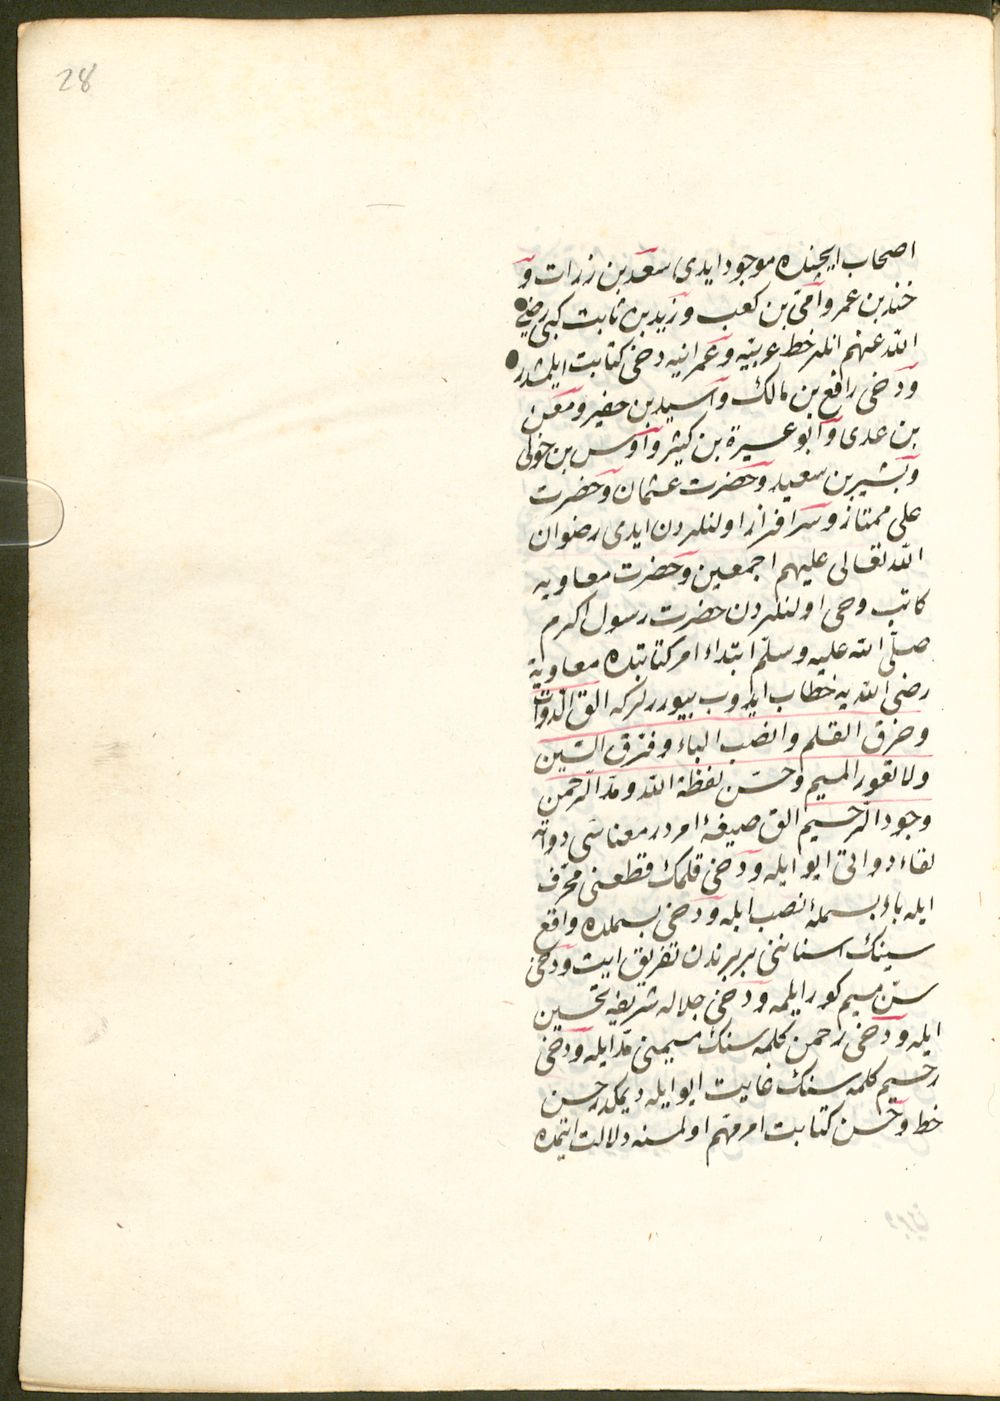 28
اصحاب ایچنده موجود ایدی سعد بن زرات و
خند بن عمرو وآمّی بن کعب و زید بن ثابت کبی رضی
الله عنهم انلر خط عربیّه و عمرانیه دخی کتابت ایلمشدر
و دخی رافع بن مالک و اسید بن حضیر و معن
بن عدی و ابو عسیرة بن کیثر و اوس بن خولی
و بشیر بن سعید و حضرت عثمان و حضرت
علی ممتاز و سرافراز اولنلردن ایدی رضوان
الله تعالی علیهم اجمعین و حضرت معاویه
کاتب وحی اولنلردن حضرت رسول اکرم
صلّی الله علیه وسلّم ابتداء امر کتابتده معاویة
رضی اللهیه خطاب ایدوب بیوررلرکه الق الدوات
وحرّق القلم وانصب الباء وفرّق السّین
ولا تعور المیم وحسّن لفظة الله ومدّ الرّحمن
وجود الرّحیم الق صیغهٔ امردر معناسی دواته
لقاء دواتی ایو ایله و دخی قلمک قطعنی محرّف
ایله باء بسملهٔ نصب ایله و دخی بسملده واقع
سینک اسناننی بربرندن تفریق ایت و دخی
سن میم کور ایلمه و دخی جلاله شریفه تحسین
ایله و دخی رحمن کلمه سنک میمینی مدّ ایله و دخی
رحیم کلمه سنک غایت ایو ایله دیمکدر حسن
خط و حسن کتابت امر مهم اولمسنه دلالت ایتمده